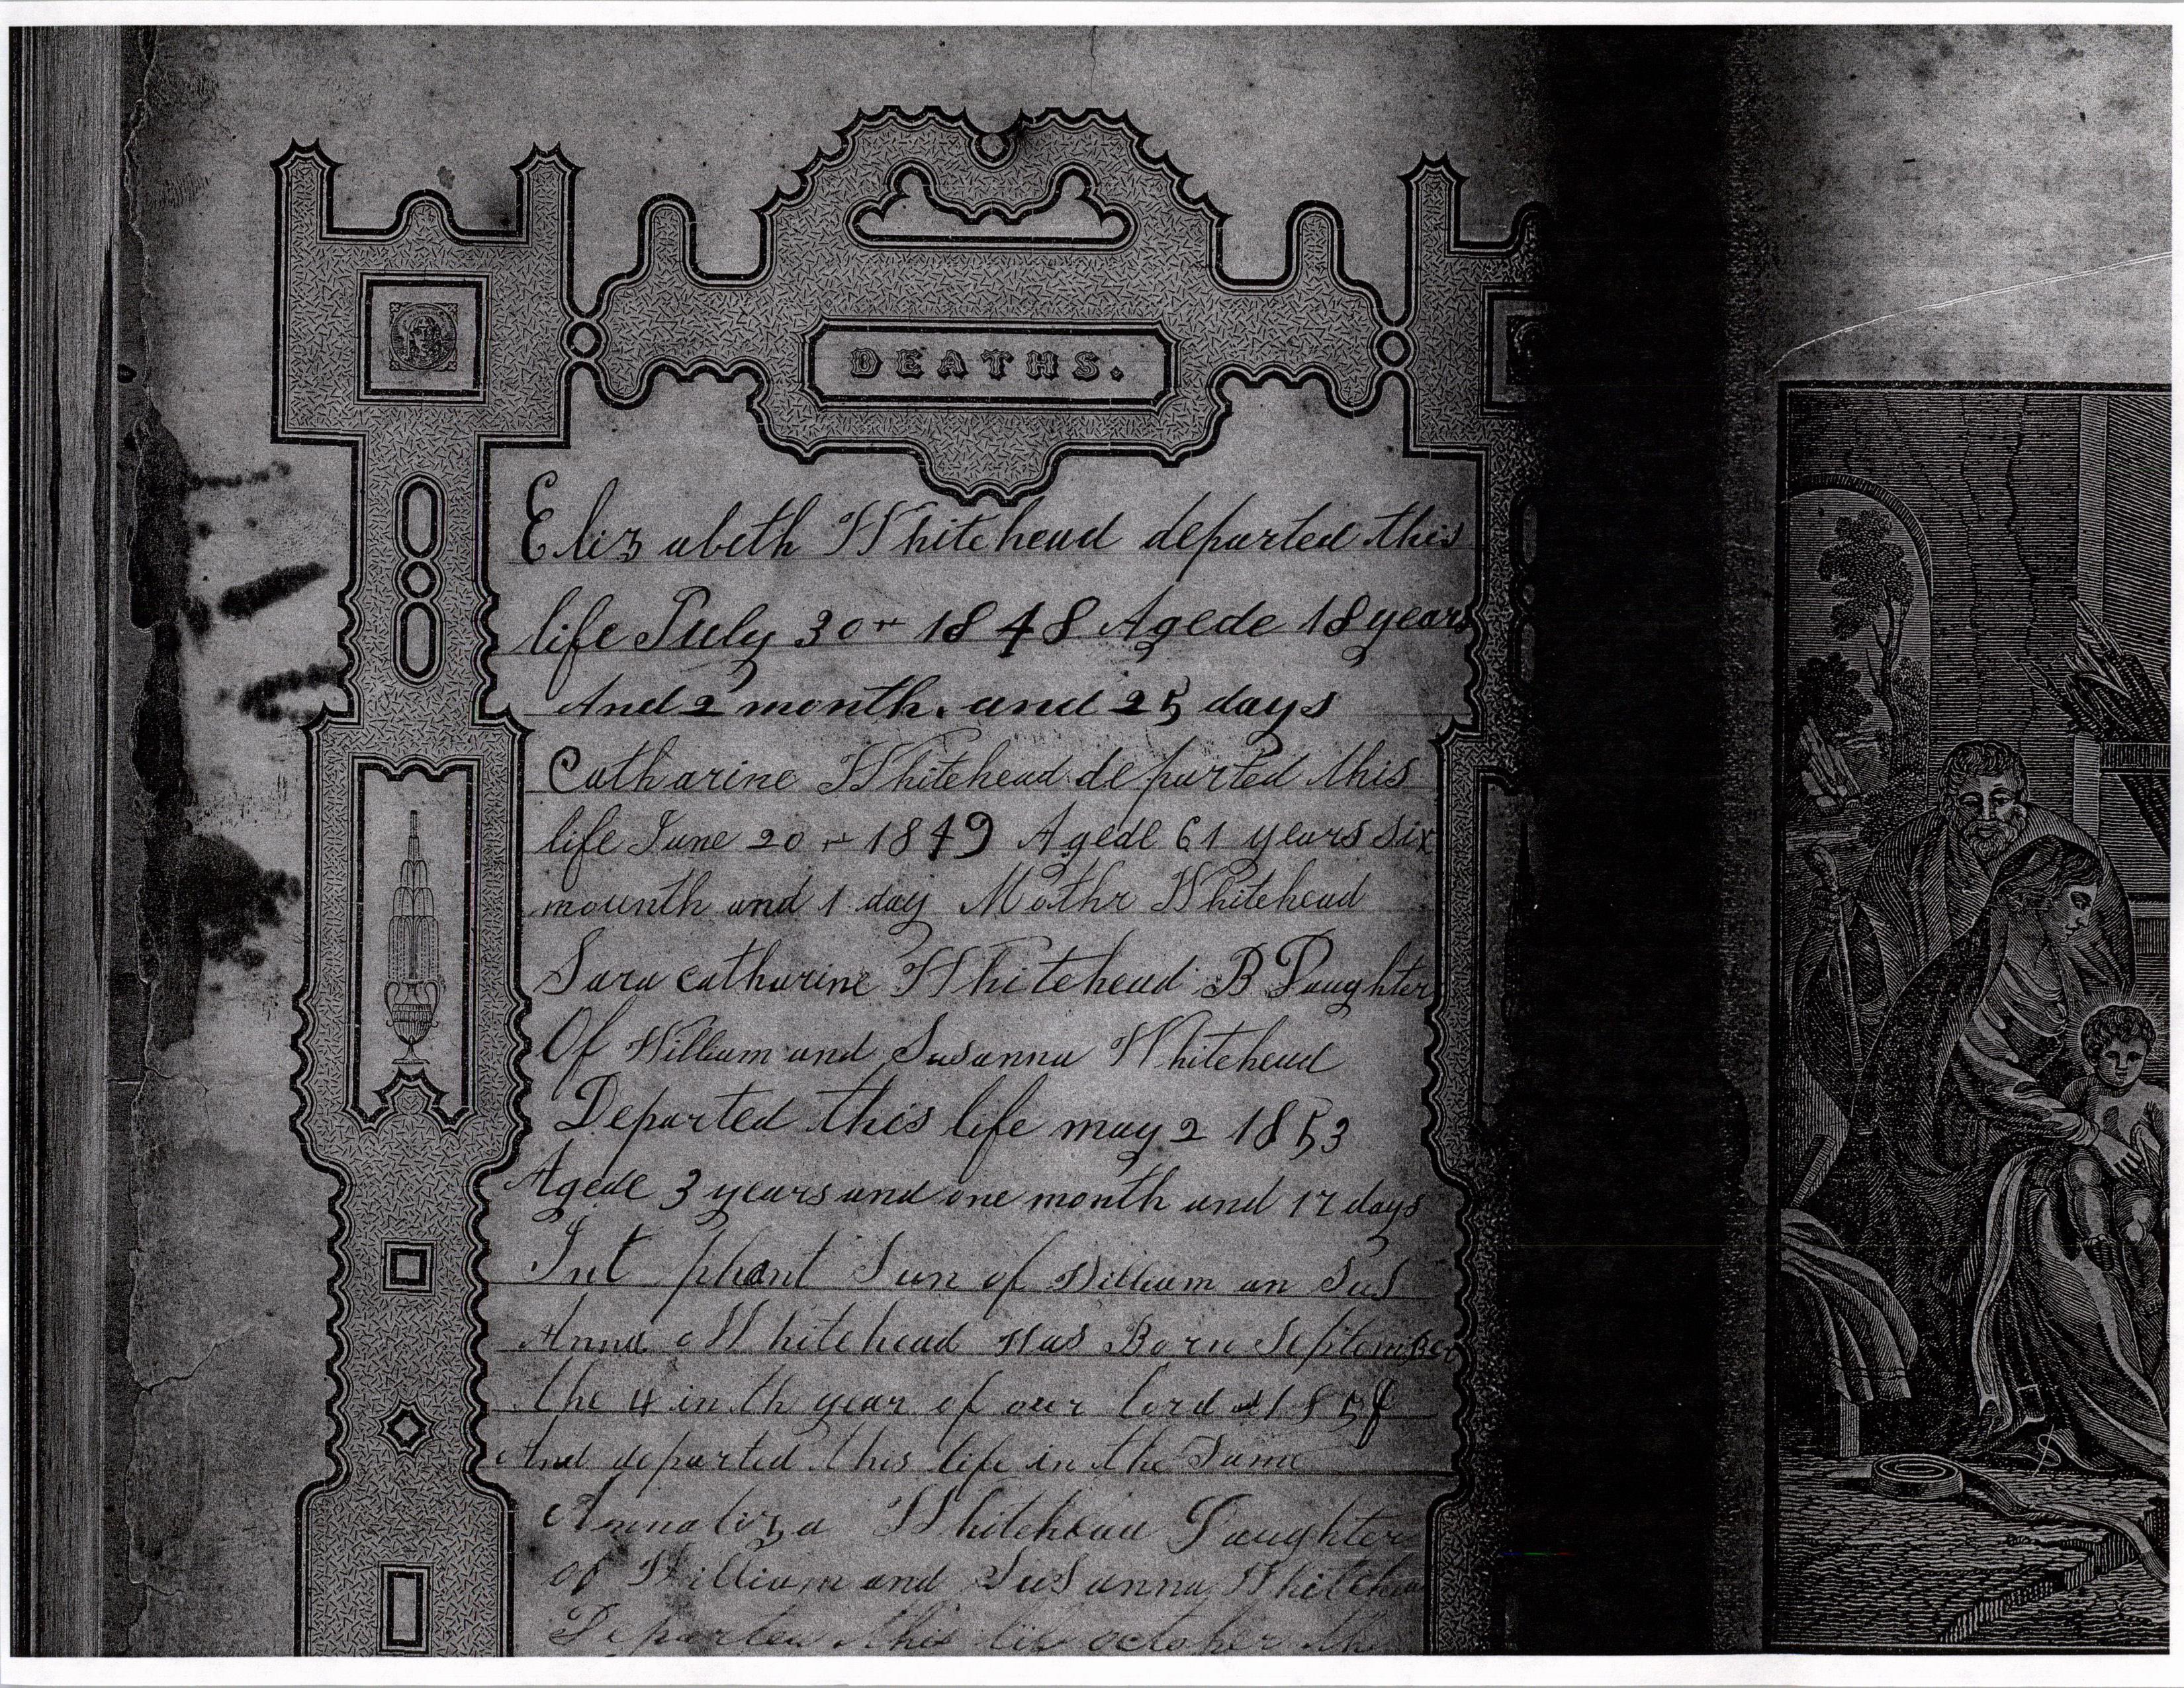 DEATHS.
Elizabeth Whitehead departed this
life July 30th 1848 Agede 18 years
And 2 month. and 25 days
Catharine Whitehead departed this
life June 20th 1849 Agede 61 years six
mounth and 1 day Mothr Whitehead
Sara catharine Whitehead B Daughter
Of William and Susanna Whitehead
Departed this life may 2 1853
Agede 3 years and one month and 17 days
phant Sun of William an Sus
Anna Whitehead Was Born September
the 4 in th year of our lord 185
And departed this life in the Same
Annaliza Whitehead Daughter
of William and SuSanna Whitehea
Departed this life october the